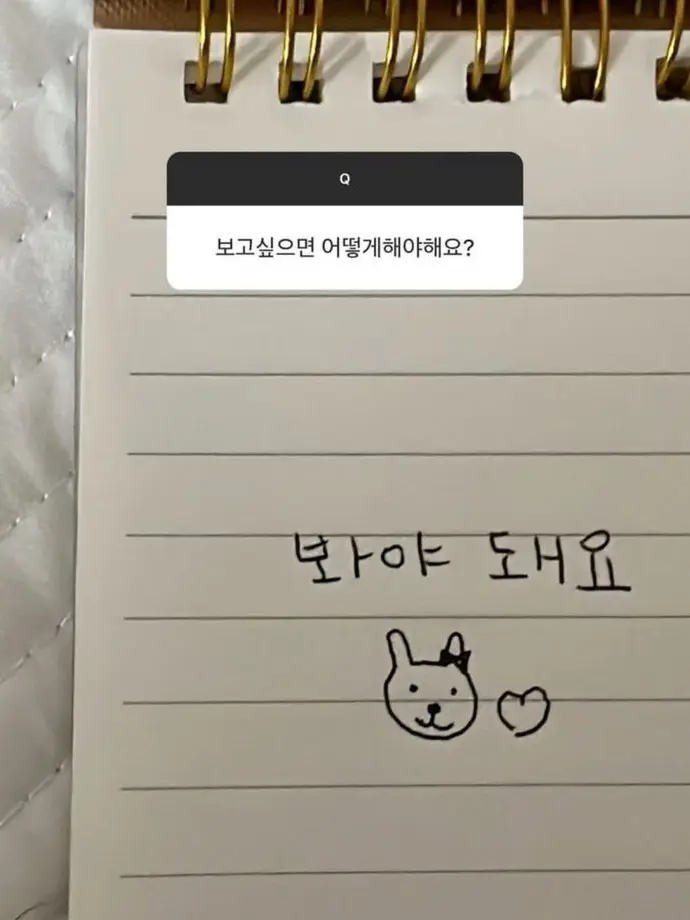 Q
보고싶으면 어떻게해야해요?
봐야 돼요